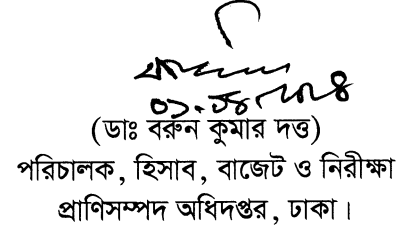 (ডাঃ বরুন কুমার দত্ত)
পরিচালক, হিসাব, বাজেট ও নিরীক্ষা
প্রাণিসম্পদ অধিদপ্তর, ঢাকা।